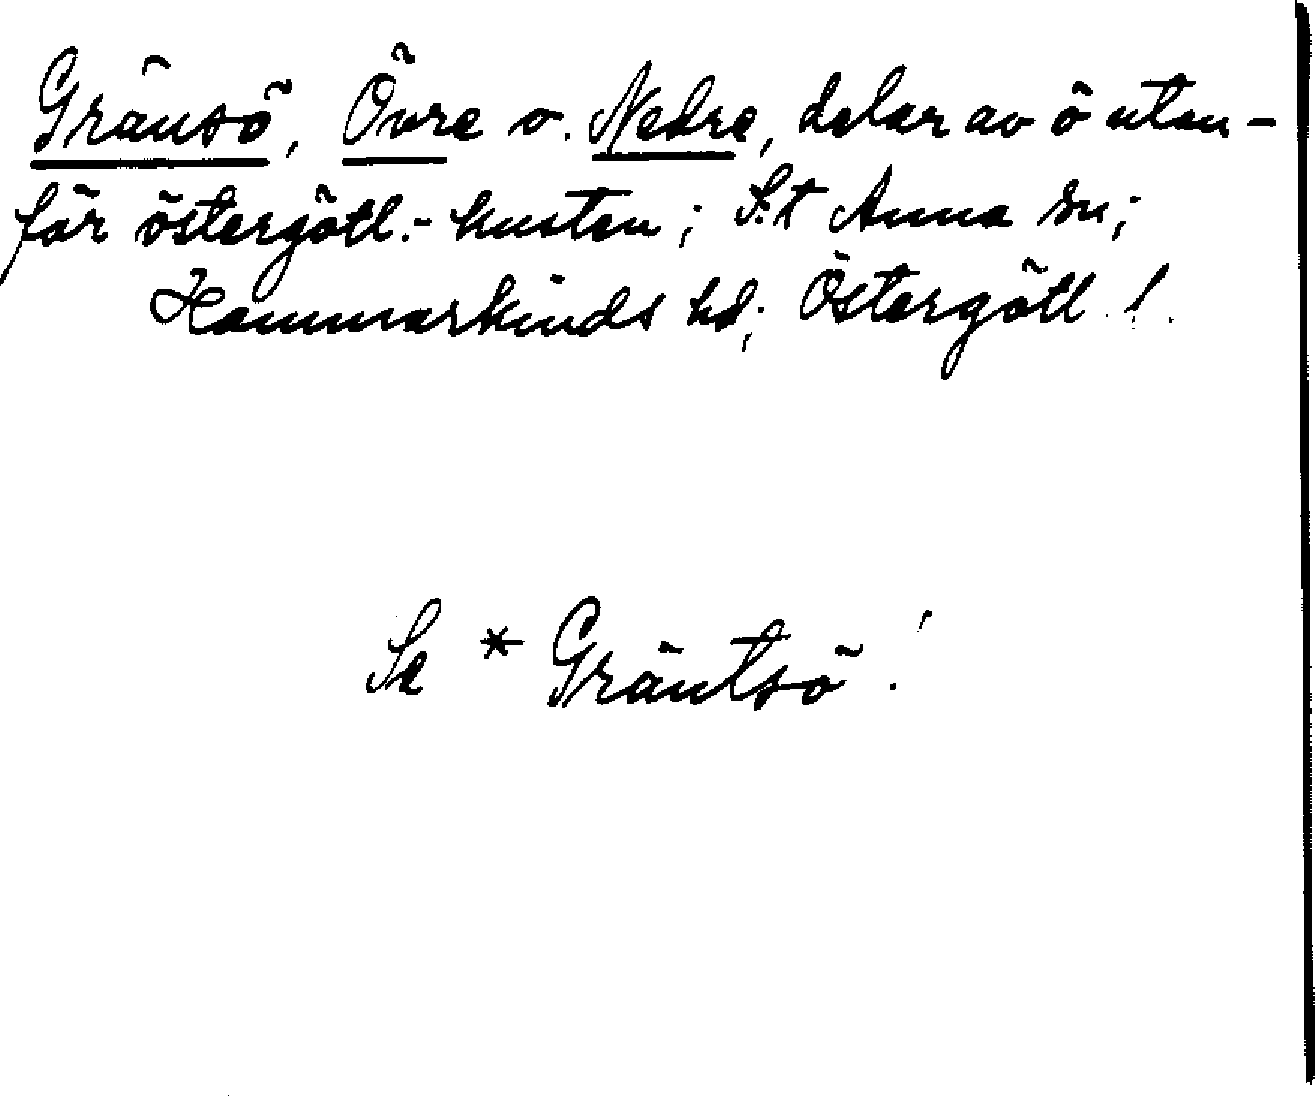 Gränsö, Övre o. Nedre, delar av ö utan-
för östergötl.-kusten; S:t Anna sn;
Hammarkinds hd; Östergötl. !.
Se * Gräntsö !